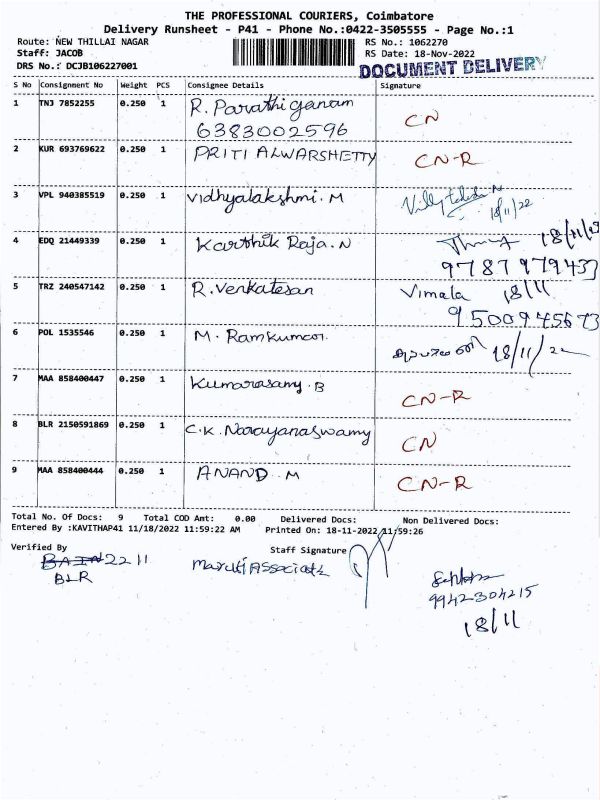 THE PROFESSIONAL COURIERS, Coimbatore
Delivery Runsheet - P41 - Phone No.:0422-3505555 - Page No.:1
Route: NEW THILLAI NAGAR RS No.: 1062270
Staff: JACOB RS Date: 18-Nov-2022
DRS No.: DCJB106227001 DOCUMENT DELIVERY
S No Consignment No Weight PCS Consignee Details Signature
1 TNJ 7852255 0.250 1 R. Parathiganam CN
6383002596
2 KUR 693769622 0.250 1 PRITI ALWARSHETTY CN-R
3 VPL 940385519 0.250 1 Vidhyalakshmi. M
18/11/22
4 EDQ 21449339 0.250 1 Karthik Raja. N 18/11/22
9787979437
5 TRZ 240547142 0.250 1 R. Venkatesan Vimala 18/11
9500945673
6 POL 1535546 0.250 1 M. Ramkumar. 18/11/22
7 MAA 858400447 0.250 1 Kumarasamy. B CN-R
8 BLR 2150591869 0.250 1 C.K. Narayanaswamy CN
9 MAA 858400444 0.250 1 ANAND. M CN-R
Total No. Of Docs: 9 Total COD Amt: 0.00 Delivered Docs: Non Delivered Docs:
Entered By :KAVITHAP41 11/18/2022 11:59:22 AM Printed On: 18-11-2022 11:59:26
Verified By Staff Signature
2211 Maruti Associats
BLR
9942304215
18/11